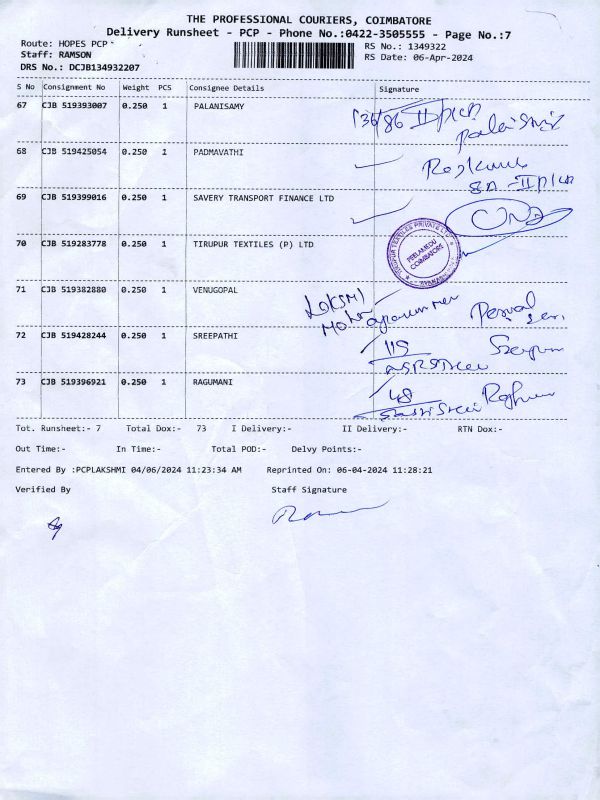 THE PROFESSIONAL COURIERS, COIMBATORE
Delivery Runsheet - PCP - Phone No.:0422-3505555 - Page No.:7
Route: HOPES PCP
RS No.: 1349322
Staff: RAMSON
RS Date: 06-Apr-2024
DRS No.: DCJB134932207
S No Consignment No Weight PCS Consignee Details Signature
67 CJB 519393007 0.250 1 PALANISAMY
136/86
68 CJB 519425054 0.250 1 PADMAVATHI
69 CJB 519399016 0.250 1 SAVERY TRANSPORT FINANCE LTD
70 CJB 519283778 0.250 1 TIRUPUR TEXTILES (P) LTD
TIRUPUR TEXTILES PRIVATE LTD
PEELAMEDU
COIMBATORE
71 CJB 519382880 0.250 1 VENUGOPAL
72 CJB 519428244 0.250 1 SREEPATHI
119
73 CJB 519396921 0.250 1 RAGUMANI
48
Tot. Runsheet:- 7 Total Dox:- 73 I Delivery:- II Delivery:- RTN Dox:-
Out Time:- In Time:- Total POD:- Delvy Points:-
Entered By :PCPLAKSHMI 04/06/2024 11:23:34 AM Reprinted On: 06-04-2024 11:28:21
Verified By Staff Signature